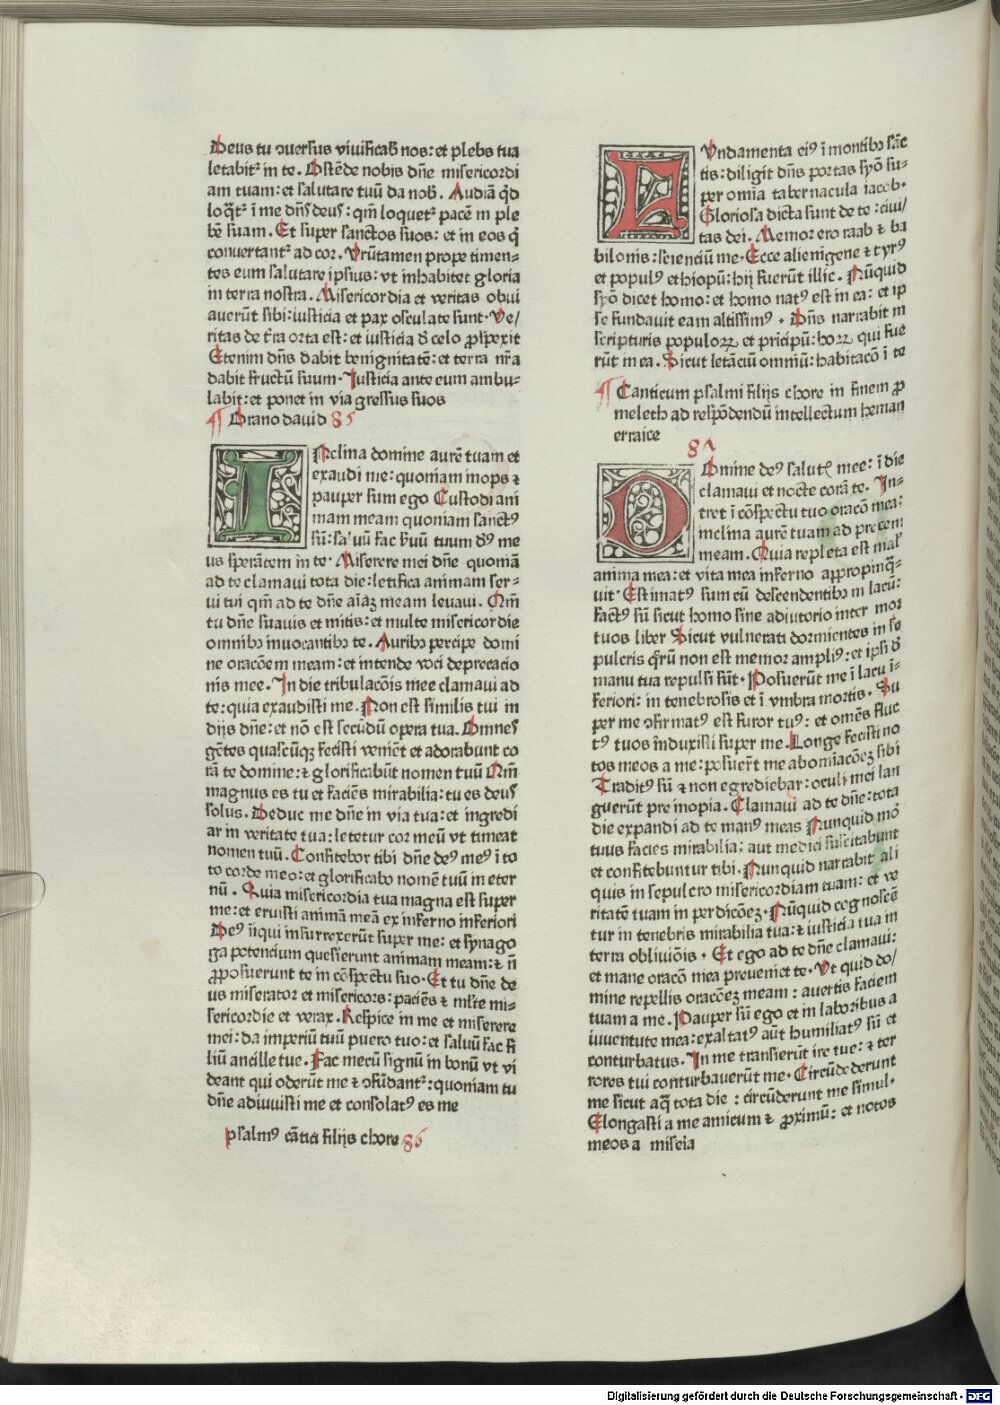 Deus tu ꝯuersus viuificab̄ nos: et plebs tua
letabit᷑ in te. Ostēde nobis dn̄e misericordi
am tuam: et salutare tuū da nob̄. Audiā qd̄
loq̄t᷑ ī me dn̄s deus: qm̄ loquet᷑ pacē in ple
bē suam. Et super sanctos suos: et in eos q̄
conuertant᷑ ad cor. Verūtamen prope timen⸗
tes eum salutare ipsius: vt inhabitet gloria
in terra nostra. Misericordia et veritas obui
auerūt sibi: iusticia et pax osculate sunt. Ve/
ritas de t̄ra orta est: et iusticia d̄ celo ꝓspexit
Etenim dn̄s dabit benignitatē: et terra nr̄a
dabit fructū suum. Iusticia ante eum ambu⸗
labit: et ponet in via gressus suos
¶ Orano dauid 85
INclina domine aurē tuam et
exaudi me: quoniam inops ⁊
pauper sum ego Custodi ani
mam meam quoniam sanctꝰ
sū: saluū fac s̄uū tuum dꝰ me
us sperātem in te. Miserere mei dn̄e quoniā
ad te clamaui tota die: letifica animam ser⸗
ui tui qm̄ ad te dn̄e aīaꝫ meam leuaui. Qm̄
tu dn̄e suauis et mitis: et multe misericordie
omnibꝫ inuocantibꝫ te. Auribꝫ percipe domi
ne oracōem meam: et intende voci deprecacio
nis mee. In die tribulacōis mee clamaui ad
te: quia exaudisti me. Non est similis tui in
dijs dn̄e: et nō est secūdū opera tua. Omnes
gētes quascūqꝫ fecisti veniēt et adorabunt co
rā te domine: ⁊ glorificabūt nomen tuū Qm̄
magnus es tu et faciēs mirabilia: tu es deus
solus. Deduc me dn̄e in via tua: et ingredi
ar in veritate tua: letetur cor meū vt timeat
nomen tuū. Confitebor tibi dn̄e deꝰ meꝰ ī to
to corde meo: et glorificabo nomē tuū in eter
nū. Quia misericordia tua magna est super
me: et eruisti animā meā ex inferno inferiori
Deꝰ īiqui insurrexerūt super me: et synago
ga potencium quesierunt animam meam: ⁊ n̄
ꝓposuerunt te in cōspectu suo. Et tu dn̄e de
us miserator et misericors: paciēs ⁊ ml̄te mi⸗
sericordie et verax. Respice in me et miserere
mei: da imperiū tuū puero tuo: et saluū fac fi
liū ancille tue. Fac mecū signū in bonū vt vi
deant qui oderūt me ⁊ ꝯfūdant᷑: quoniam tu
dn̄e adiuuisti me et consolatꝰ es me
psalmꝰ cātici filijs chore 86
FVndamenta eiꝰ ī montibꝫ sāc
tis: diligit dn̄s portas syō su⸗
per omīa tabernacula iacob.
Gloriosa dicta sunt de te: ciui/
tas dei. Memor ero raab ⁊ ba
bilonis: scienciū me. Ecce alienigene ⁊ tyrꝰ
et populꝰ ethiopū: hij fuerūt illic. Nūquid
syō dicet homo: et homo natꝰ est in ea: et ip
se fundauit eam altissimꝰ. Dn̄s narrabit in
scripturis populoꝝ et pricipū: hoꝝ qui fue
rūt in ea. Sicut letāciū omniū: habitacō ī te
¶ Canticum psalmi filijs chore in finem ꝓ
meleth ad respōdendū intellectum heman
erraice
87
DOmine deꝰ salutꝭ mee: ī die
clamaui et nocte corā te. In⸗
tret ī cōspectu tuo oracō mea:
inclina aurē tuam ad precem
meam. Quia repleta est mal᷑
anima mea: et vita mea inferno appropinq̄⸗
uit. Estimatꝰ sum cū descendentibꝫ in lacū:
factꝰ sū sicut homo sine adiutorio inter mor
tuos liber Sicut vulnerati dormientes in se
pulcris qr̄ū non est memor ampliꝰ: et ipsi d̄
manu tua repulsi sūt. Posuerūt me ī lacu ī⸗
feriori: in tenebrosis et ī vmbra mortis. Su
per me ꝯfirmatꝰ est furor tuꝰ: et omēs fluc
tꝰ tuos induxisti super me. Longe fecisti no
tos meos a me: posuer̄t me abomiacōeꝫ sibi
Traditꝰ sū ⁊ non egrediebar: oculi mei lan
guerūt pre inopia. Clamaui ad te dn̄e: tota
die expandi ad te manꝰ meas Nunquid mō
tuus facies mirabilia: aut medici suscitabunt
et confitebuntur tibi. Nunquid narrabit ali
quis in sepulcro misericordiam tuam: et ve
ritatē tuam in perdicōeꝫ. Nūquid cognoscē
tur in tenebris mirabilia tua: ⁊ iusticia tua in
terra obliuiōis. Et ego ad te dn̄e clamaui:
et mane oracō mea preueniet te. Vt quid do/
mine repellis oracōeꝫ meam: auertis faciem
tuam a me. Pauper sū ego et in laboribus a
iuuentute mea: exaltatꝰ aūt humiliatꝰ sū et
conturbatus. In me transierūt ire tue: ⁊ ter
rores tui conturbauerūt me. Circūdederunt
me sicut aq̄ tota die: circūderunt me simul.
Elongasti a me amicum ⁊ proximū: et notos
meos a miseia
Digitalisierung gefördert durch die Deutsche Forschungsgemeinschaft - DFG